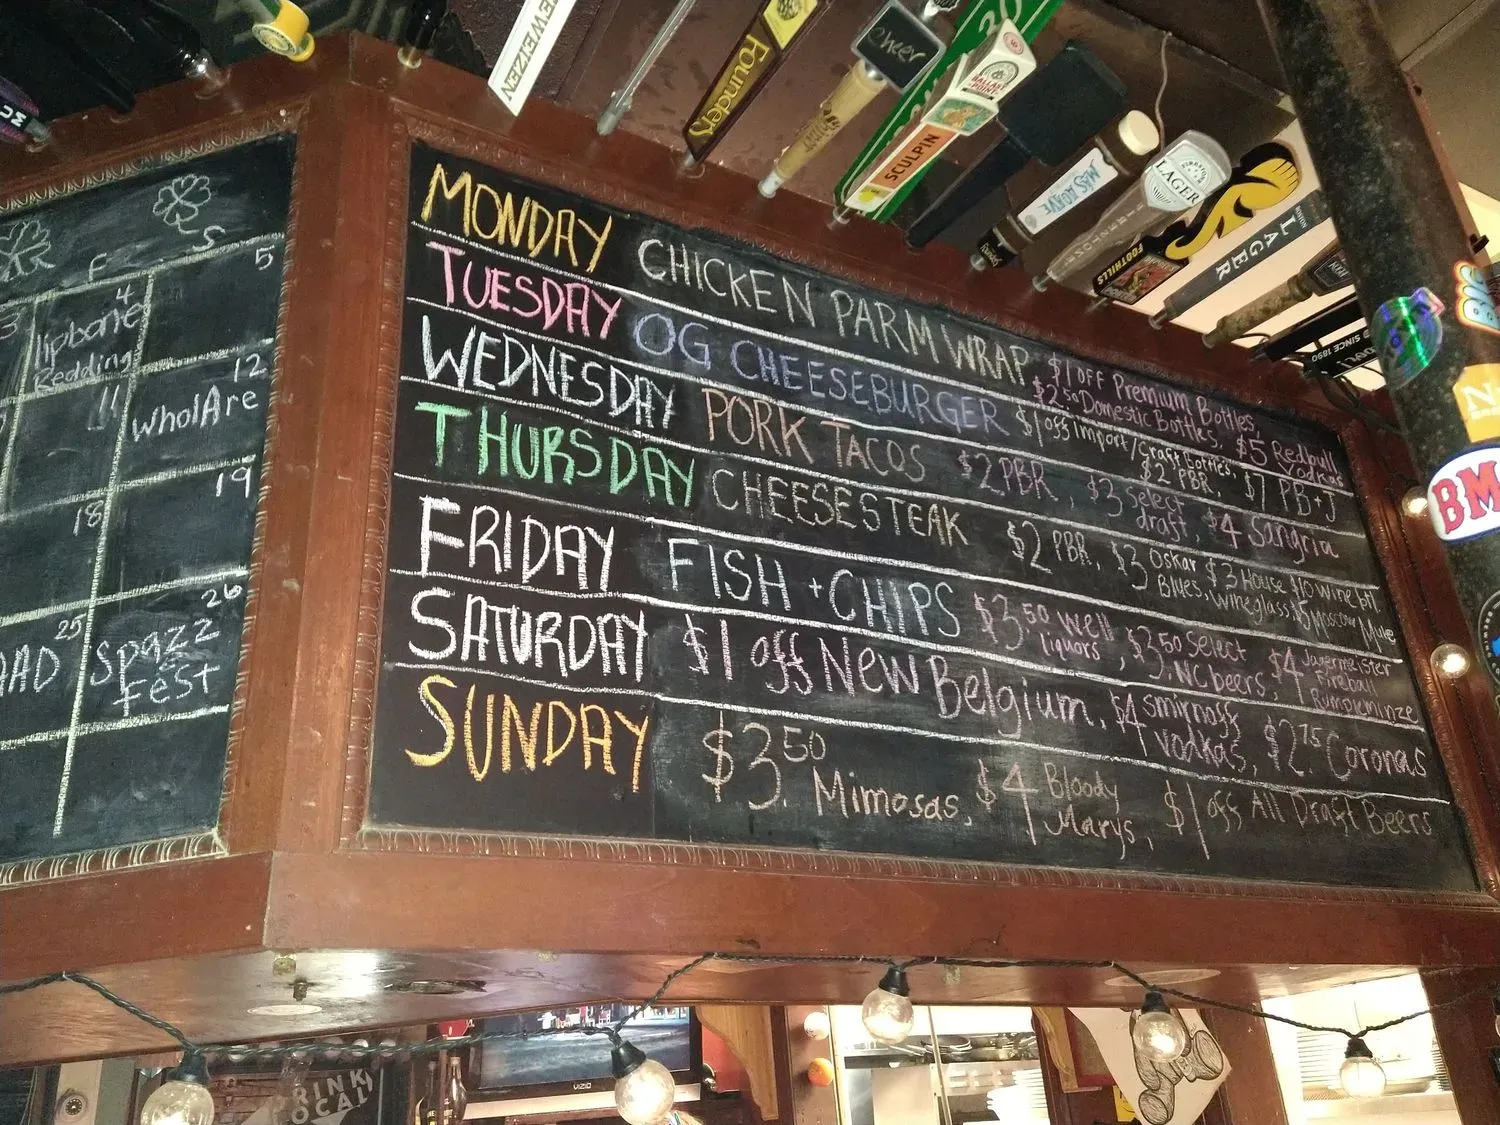 EWEIZEN
Founders
cheer
BALLAST POINT
SCULPIN
LAGER
FOOTHILLS
LAGER
SINCE 1890
F S
4 5
lipbone
Redding
11 12
WholAre
18 19
25 26
AAD Spazz
Fest
MONDAY CHICKEN PARM WRAP $1 OFF Premium Bottles,
$2.50 Domestic Bottles, $5 Redbull
Vodkas
TUESDAY OG CHEESEBURGER $1 off Import/Craft Bottles,
$2 PBR, $7 PB+J
WEDNESDAY PORK TACOS $2 PBR, $3 Select
draft, $4 Sangria
THURSDAY CHEESESTEAK $2 PBR, $3 Oskar
Blues, $3 House
wine glass, $10 wine btl.
$5 Moscow Mule
FRIDAY FISH + CHIPS $3.50 well
liquors, $3.50 Select
NC beers, $4 Jagermeister
Fireball
Rumpleminze
SATURDAY $1 off New Belgium, $4 smirnoff
vodkas, $2.75 Coronas
SUNDAY $3.50 Mimosas, $4 Bloody
Marys, $1 off All Draft Beers
BM
VIZIO
DRINK
LOCAL